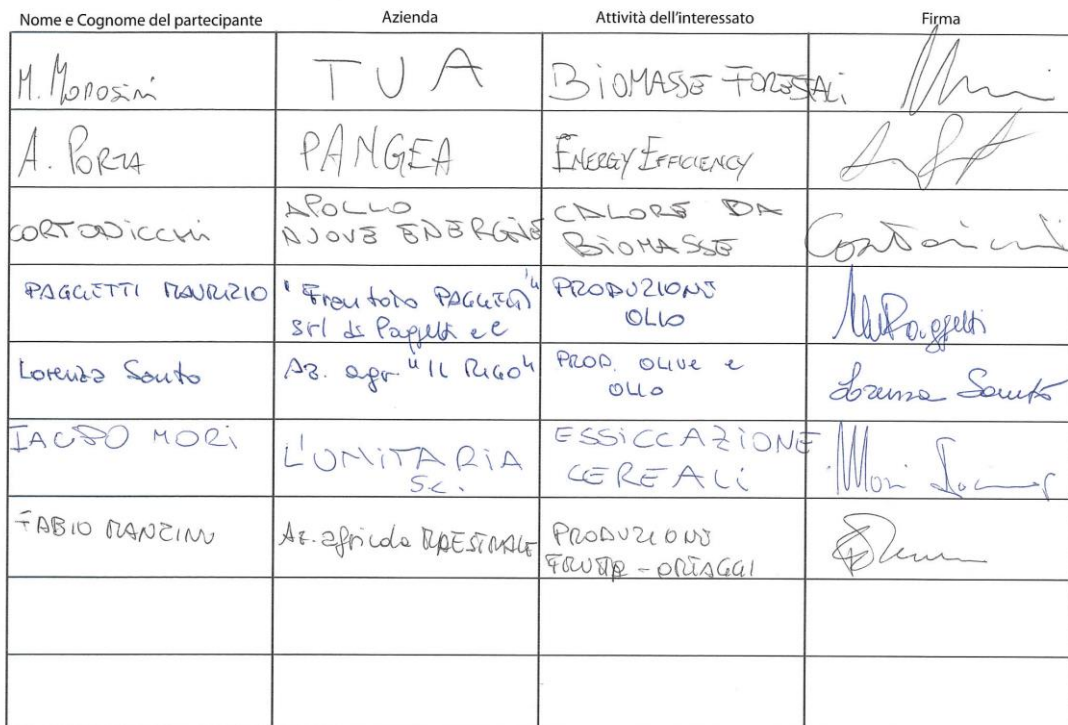 Nome e Cognome del partecipante Azienda Attività dell'interessato Firma
M. Morosini TUA BIOMASSE FORESTALi
A. PORZA PANGEA ENERGY EFFICIENCY
CORTONICCHI APOLLO NUOVE ENERGIE CALORE DA BIOMASSE
PAGGETTI MAURIZIO "Frantoio PAGGETTI" srl di Paggetti e C PRODUZIONE OLIO
Lorenza Santo AZ. agr. "IL RIGO" PROD. OLIVE e OLIO Lorenza Santo
IACOPO MORI L'UNITARIA S.C. ESSICCAZIONE CEREALI Mori
FABIO MANZINI Az. agricola MAESTRALE PRODUZIONE FRUTTA - ORTAGGI